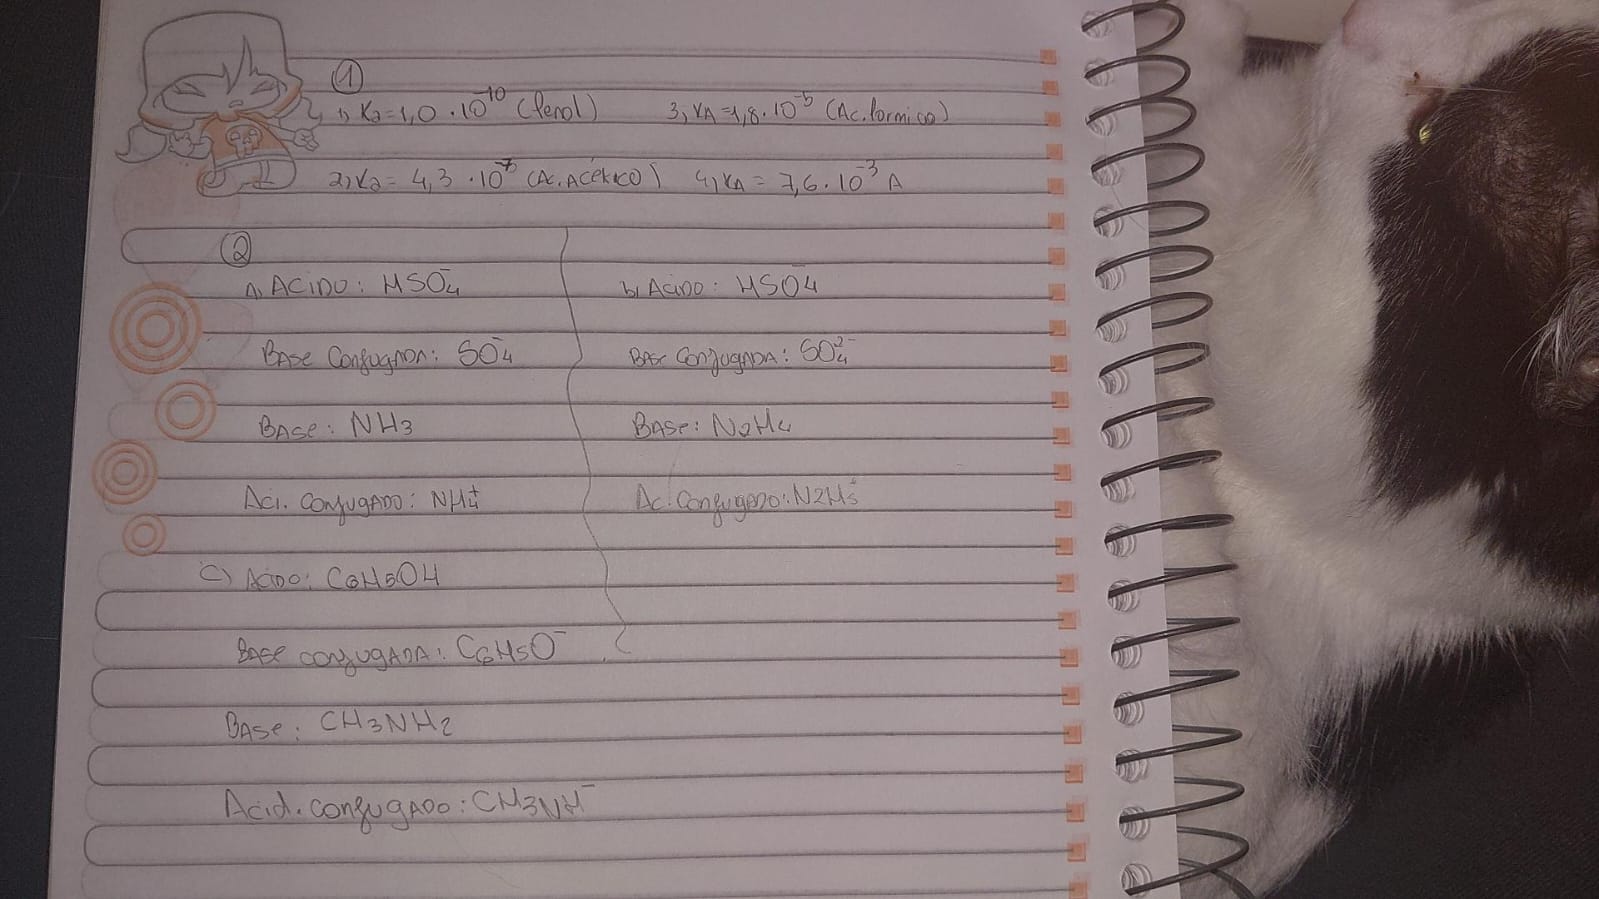 1
1) Ka = 1,0 · 10⁻¹⁰ (fenol) 3) KA = 1,8 · 10⁻⁵ (Ac. formico)
2) Ka = 4,3 · 10⁻⁷ (Ac. Acético) 4) KA = 7,6 · 10⁻³ A
2
A) ACIDO: HSO₄⁻ b) Acido: HSO₄⁻
BASE Conjugada: SO₄⁻ BASE Conjugada: SO₄²⁻
BASE: NH3 BASE: N2H4
Aci. Conjugado: NH₄⁺ Ac. Conjugado: N2H₅⁺
C) Acido: C6H5OH
BASE conjugada: C6H5O⁻
BASE: CH3NH2
Acid. conjugado: CH3NH⁻